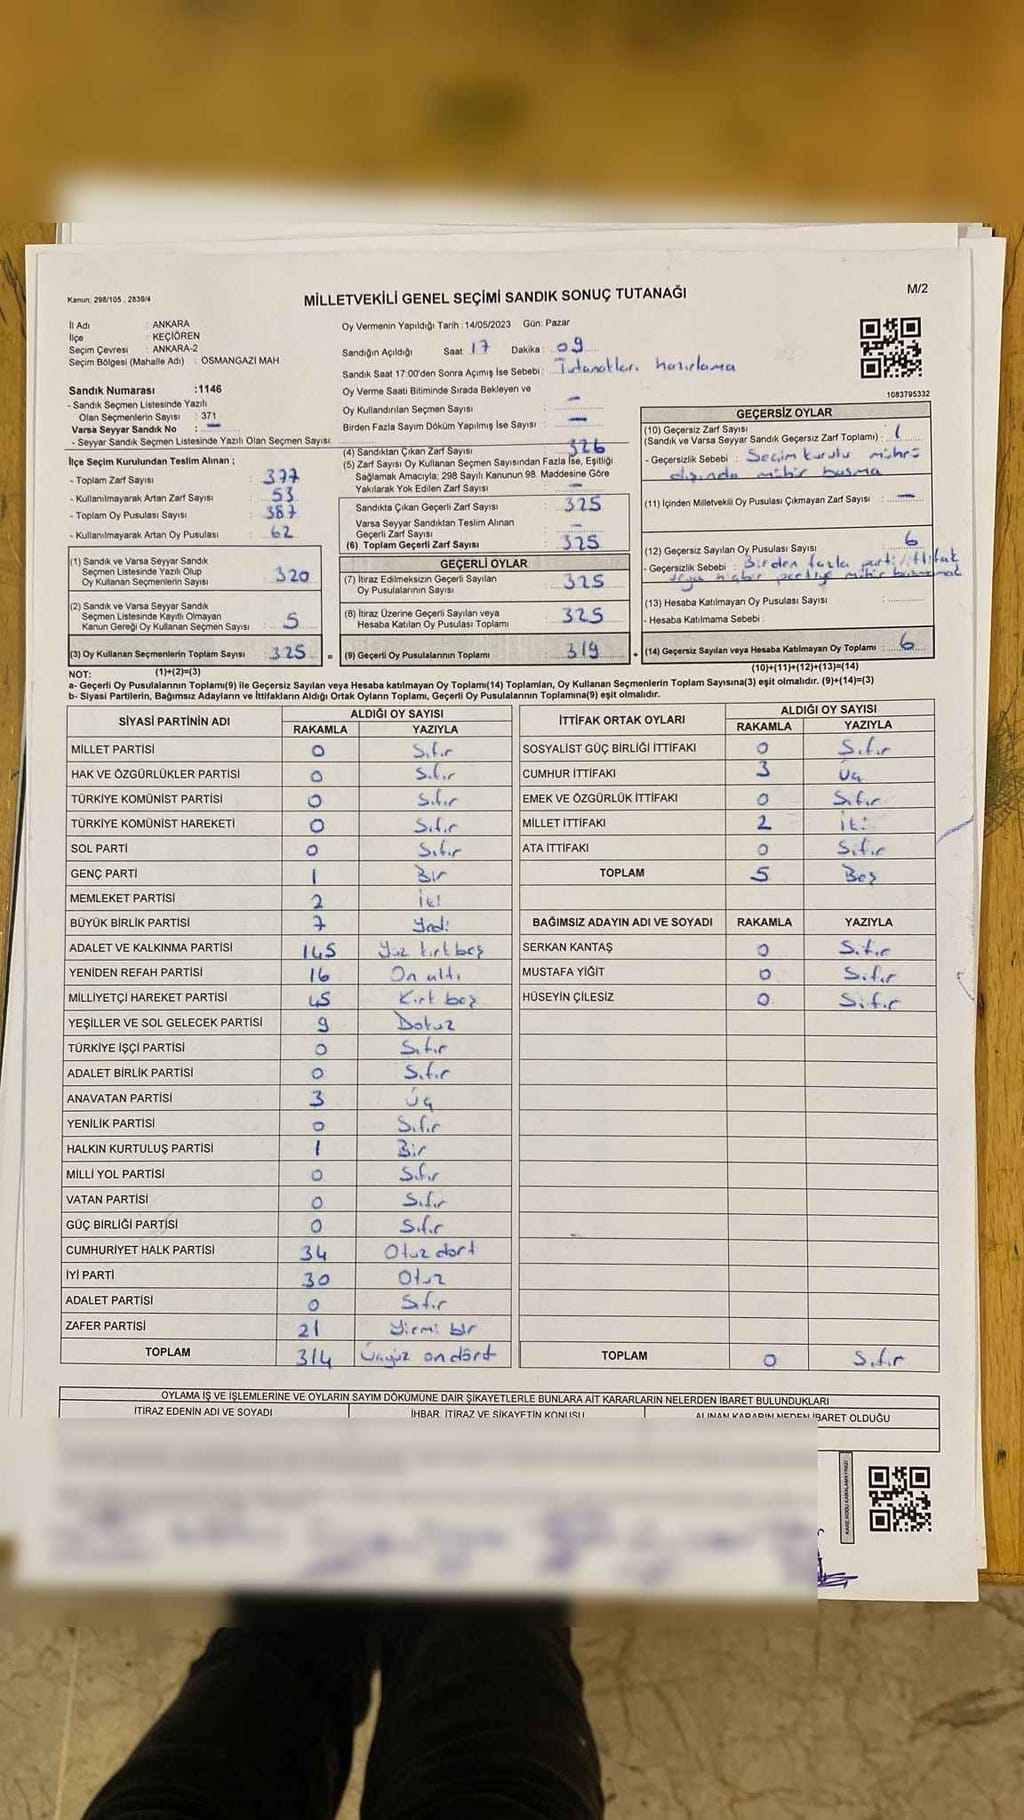 Kanun: 298/105 , 2839/4
MİLLETVEKİLİ GENEL SEÇİMİ SANDIK SONUÇ TUTANAĞI
M/2
İl Adı : ANKARA
İlçe : KEÇİÖREN
Seçim Çevresi : ANKARA-2
Seçim Bölgesi (Mahalle Adı) : OSMANGAZİ MAH
Sandık Numarası :1146
- Sandık Seçmen Listesinde Yazılı
Olan Seçmenlerin Sayısı : 371
Varsa Seyyar Sandık No : —
- Seyyar Sandık Seçmen Listesinde Yazılı Olan Seçmen Sayısı:
Oy Vermenin Yapıldığı Tarih :14/05/2023 Gün: Pazar
Sandığın Açıldığı Saat: 17 Dakika : 09
Sandık Saat 17:00'den Sonra Açımış İse Sebebi : Tutanakları hazırlama
Oy Verme Saati Bitiminde Sırada Bekleyen ve
Oy Kullandırılan Seçmen Sayısı : —
Birden Fazla Sayım Döküm Yapılmış İse Sayısı : —
1083795332
İlçe Seçim Kurulundan Teslim Alınan ;
- Toplam Zarf Sayısı : 377
- Kullanılmayarak Artan Zarf Sayısı : 53
- Toplam Oy Pusulası Sayısı : 387
- Kullanılmayarak Artan Oy Pusulası : 62
(1) Sandık ve Varsa Seyyar Sandık
Seçmen Listesinde Yazılı Olup
Oy Kullanan Seçmenlerin Sayısı : 320
(2) Sandık ve Varsa Seyyar Sandık
Seçmen Listesinde Kayıtlı Olmayan
Kanun Gereği Oy Kullanan Seçmen Sayısı : 5
(3) Oy Kullanan Seçmenlerin Toplam Sayısı : 325 =
(1)+(2)=(3)
(4) Sandıktan Çıkan Zarf Sayısı : 326
(5) Zarf Sayısı Oy Kullanan Seçmen Sayısından Fazla İse, Eşitliği
Sağlamak Amacıyla; 298 Sayılı Kanunun 98. Maddesine Göre
Yakılarak Yok Edilen Zarf Sayısı : —
Sandıkta Çıkan Geçerli Zarf Sayısı : 325
Varsa Seyyar Sandıktan Teslim Alınan
Geçerli Zarf Sayısı : —
(6) Toplam Geçerli Zarf Sayısı : 325
GEÇERLİ OYLAR
(7) İtiraz Edilmeksizin Geçerli Sayılan
Oy Pusulalarının Sayısı : 325
(8) İtiraz Üzerine Geçerli Sayılan veya
Hesaba Katılan Oy Pusulası Toplamı : 325
(9) Geçerli Oy Pusulalarının Toplamı : 319 +
GEÇERSİZ OYLAR
(10) Geçersiz Zarf Sayısı
(Sandık ve Varsa Seyyar Sandık Geçersiz Zarf Toplamı) : 1
- Geçersizlik Sebebi : Seçim kurulu mührü
dışında mühür basma
(11) İçinden Milletvekili Oy Pusulası Çıkmayan Zarf Sayısı : —
(12) Geçersiz Sayılan Oy Pusulası Sayısı : 6
- Geçersizlik Sebebi : Birden fazla parti/ittifak
veya hiçbir partiye mühür basmamak
(13) Hesaba Katılmayan Oy Pusulası Sayısı :
- Hesaba Katılmama Sebebi :
(14) Geçersiz Sayılan veya Hesaba Katılmayan Oy Toplamı : 6
(10)+(11)+(12)+(13)=(14)
NOT:
a- Geçerli Oy Pusulalarının Toplamı(9) ile Geçersiz Sayılan veya Hesaba katılmayan Oy Toplamı(14) Toplamları, Oy Kullanan Seçmenlerin Toplam Sayısına(3) eşit olmalıdır. (9)+(14)=(3)
b- Siyasi Partilerin, Bağımsız Adayların ve İttifakların Aldığı Ortak Oyların Toplamı, Geçerli Oy Pusulalarının Toplamına(9) eşit olmalıdır.
SİYASİ PARTİNİN ADI ALDIĞI OY SAYISI
RAKAMLA YAZIYLA
MİLLET PARTİSİ 0 Sıfır
HAK VE ÖZGÜRLÜKLER PARTİSİ 0 Sıfır
TÜRKİYE KOMÜNİST PARTİSİ 0 Sıfır
TÜRKİYE KOMÜNİST HAREKETİ 0 Sıfır
SOL PARTİ 0 Sıfır
GENÇ PARTİ 1 Bir
MEMLEKET PARTİSİ 2 İki
BÜYÜK BİRLİK PARTİSİ 7 Yedi
ADALET VE KALKINMA PARTİSİ 145 Yüz kırk beş
YENİDEN REFAH PARTİSİ 16 On altı
MİLLİYETÇİ HAREKET PARTİSİ 45 Kırk beş
YEŞİLLER VE SOL GELECEK PARTİSİ 9 Dokuz
TÜRKİYE İŞÇİ PARTİSİ 0 Sıfır
ADALET BİRLİK PARTİSİ 0 Sıfır
ANAVATAN PARTİSİ 3 Üç
YENİLİK PARTİSİ 0 Sıfır
HALKIN KURTULUŞ PARTİSİ 1 Bir
MİLLİ YOL PARTİSİ 0 Sıfır
VATAN PARTİSİ 0 Sıfır
GÜÇ BİRLİĞİ PARTİSİ 0 Sıfır
CUMHURİYET HALK PARTİSİ 34 Otuz dört
İYİ PARTİ 30 Otuz
ADALET PARTİSİ 0 Sıfır
ZAFER PARTİSİ 21 Yirmi bir
TOPLAM 314 Üçyüz on dört
İTTİFAK ORTAK OYLARI ALDIĞI OY SAYISI
RAKAMLA YAZIYLA
SOSYALİST GÜÇ BİRLİĞİ İTTİFAKI 0 Sıfır
CUMHUR İTTİFAKI 3 Üç
EMEK VE ÖZGÜRLÜK İTTİFAKI 0 Sıfır
MİLLET İTTİFAKI 2 İki
ATA İTTİFAKI 0 Sıfır
TOPLAM 5 Beş
BAĞIMSIZ ADAYIN ADI VE SOYADI RAKAMLA YAZIYLA
SERKAN KANTAŞ 0 Sıfır
MUSTAFA YİĞİT 0 Sıfır
HÜSEYİN ÇİLESİZ 0 Sıfır
TOPLAM 0 Sıfır
OYLAMA İŞ VE İŞLEMLERİNE VE OYLARIN SAYIM DÖKÜMÜNE DAİR ŞİKAYETLERLE BUNLARA AİT KARARLARIN NELERDEN İBARET BULUNDUKLARI
İTİRAZ EDENİN ADI VE SOYADI İHBAR, İTİRAZ VE ŞİKAYETİN KONUSU ALINAN KARARIN NEDEN İBARET OLDUĞU